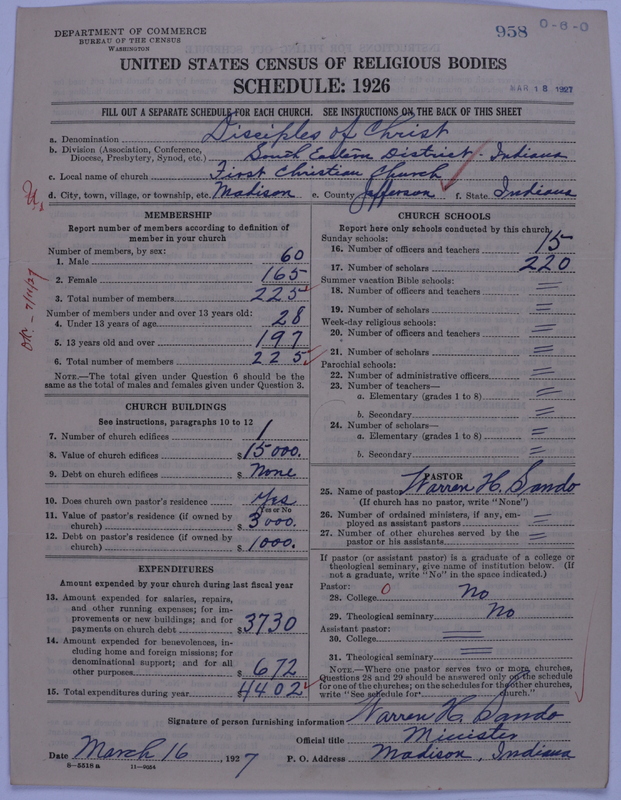 DEPARTMENT OF COMMERCE
BUREAU OF THE CENSUS
WASHINGTON
958 0-6-0
UNITED STATES CENSUS OF RELIGIOUS BODIES
SCHEDULE: 1926
MAR 18 1927
FILL OUT A SEPARATE SCHEDULE FOR EACH CHURCH. SEE INSTRUCTIONS ON THE BACK OF THIS SHEET
a. Denomination Disciples of Christ
b. Division (Association, Conference, Diocese, Presbytery, Synod, etc.) South Eastern District - Indiana
c. Local name of church First Christian Church
d. City, town, village, or township, etc. Madison e. County Jefferson f. State Indiana
MEMBERSHIP
Report number of members according to definition of
member in your church
Number of members, by sex:
1. Male 60
2. Female 165
3. Total number of members 225
Number of members under and over 13 years old:
4. Under 13 years of age 28
5. 13 years old and over 197
6. Total number of members 225
NOTE.—The total given under Question 6 should be
same as the total of males and females given under Question 3.
CHURCH BUILDINGS
See instructions, paragraphs 10 to 12
7. Number of church edifices 1
8. Value of church edifices $15000.
9. Debt on church edifices $ None
10. Does church own pastor's residence Yes
Yes or No
11. Value of pastor's residence (if owned by
church) $3000.
12. Debt on pastor's residence (if owned by
church) $1000.
EXPENDITURES
Amount expended by your church during last fiscal year
13. Amount expended for salaries, repairs,
and other running expenses; for im-
provements or new buildings; and for
payments on church debt $3730
14. Amount expended for benevolences, in-
cluding home and foreign missions; for
denominational support; and for all
other purposes $672
15. Total expenditures during year $4402
CHURCH SCHOOLS
Report here only schools conducted by this church
Sunday schools:
16. Number of officers and teachers 15
17. Number of scholars 220
Summer vacation Bible schools:
18. Number of officers and teachers =
19. Number of scholars =
Week-day religious schools:
20. Number of officers and teachers =
21. Number of scholars =
Parochial schools:
22. Number of administrative officers =
23. Number of teachers—
a. Elementary (grades 1 to 8) =
b. Secondary =
24. Number of scholars—
a. Elementary (grades 1 to 8) =
b. Secondary =
PASTOR
25. Name of pastor Warren H. Sando
(If church has no pastor, write "None")
26. Number of ordained ministers, if any, em-
ployed as assistant pastors =
27. Number of other churches served by the
pastor or his assistants =
If pastor (or assistant pastor) is a graduate of a college or
theological seminary, give name of institution below. (If
not a graduate, write "No" in the space indicated.)
Pastor:
28. College 0 No
29. Theological seminary No
Assistant pastor:
30. College =
31. Theological seminary =
NOTE.—Where one pastor serves two or more churches,
Questions 28 and 29 should be answered only on the schedule
for one of the churches; on the schedules for the other churches,
write "See schedule for church."
Signature of person furnishing information Warren H. Sando
Official title Minister
Date March 16, 1927 P. O. Address Madison, Indiana
8-5518 a 11-9054